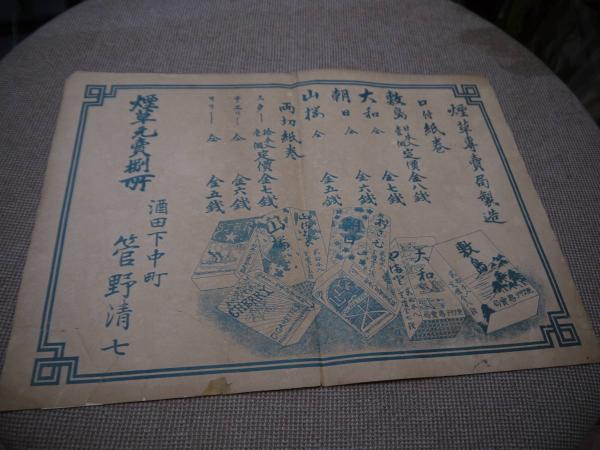 煙草專賣局製造
口付紙卷
敷島 貳拾本壹個定價金八錢
大和 仝 金七錢
朝日 仝 金六錢
山櫻 仝 金五錢
両切紙卷
スター 拾本壹個定價金七錢
チエリー 仝 金六錢
仝 金五錢
煙草元賣捌所
酒田下中町
菅野清七
敷島
大和
朝日
山櫻
CHERRY